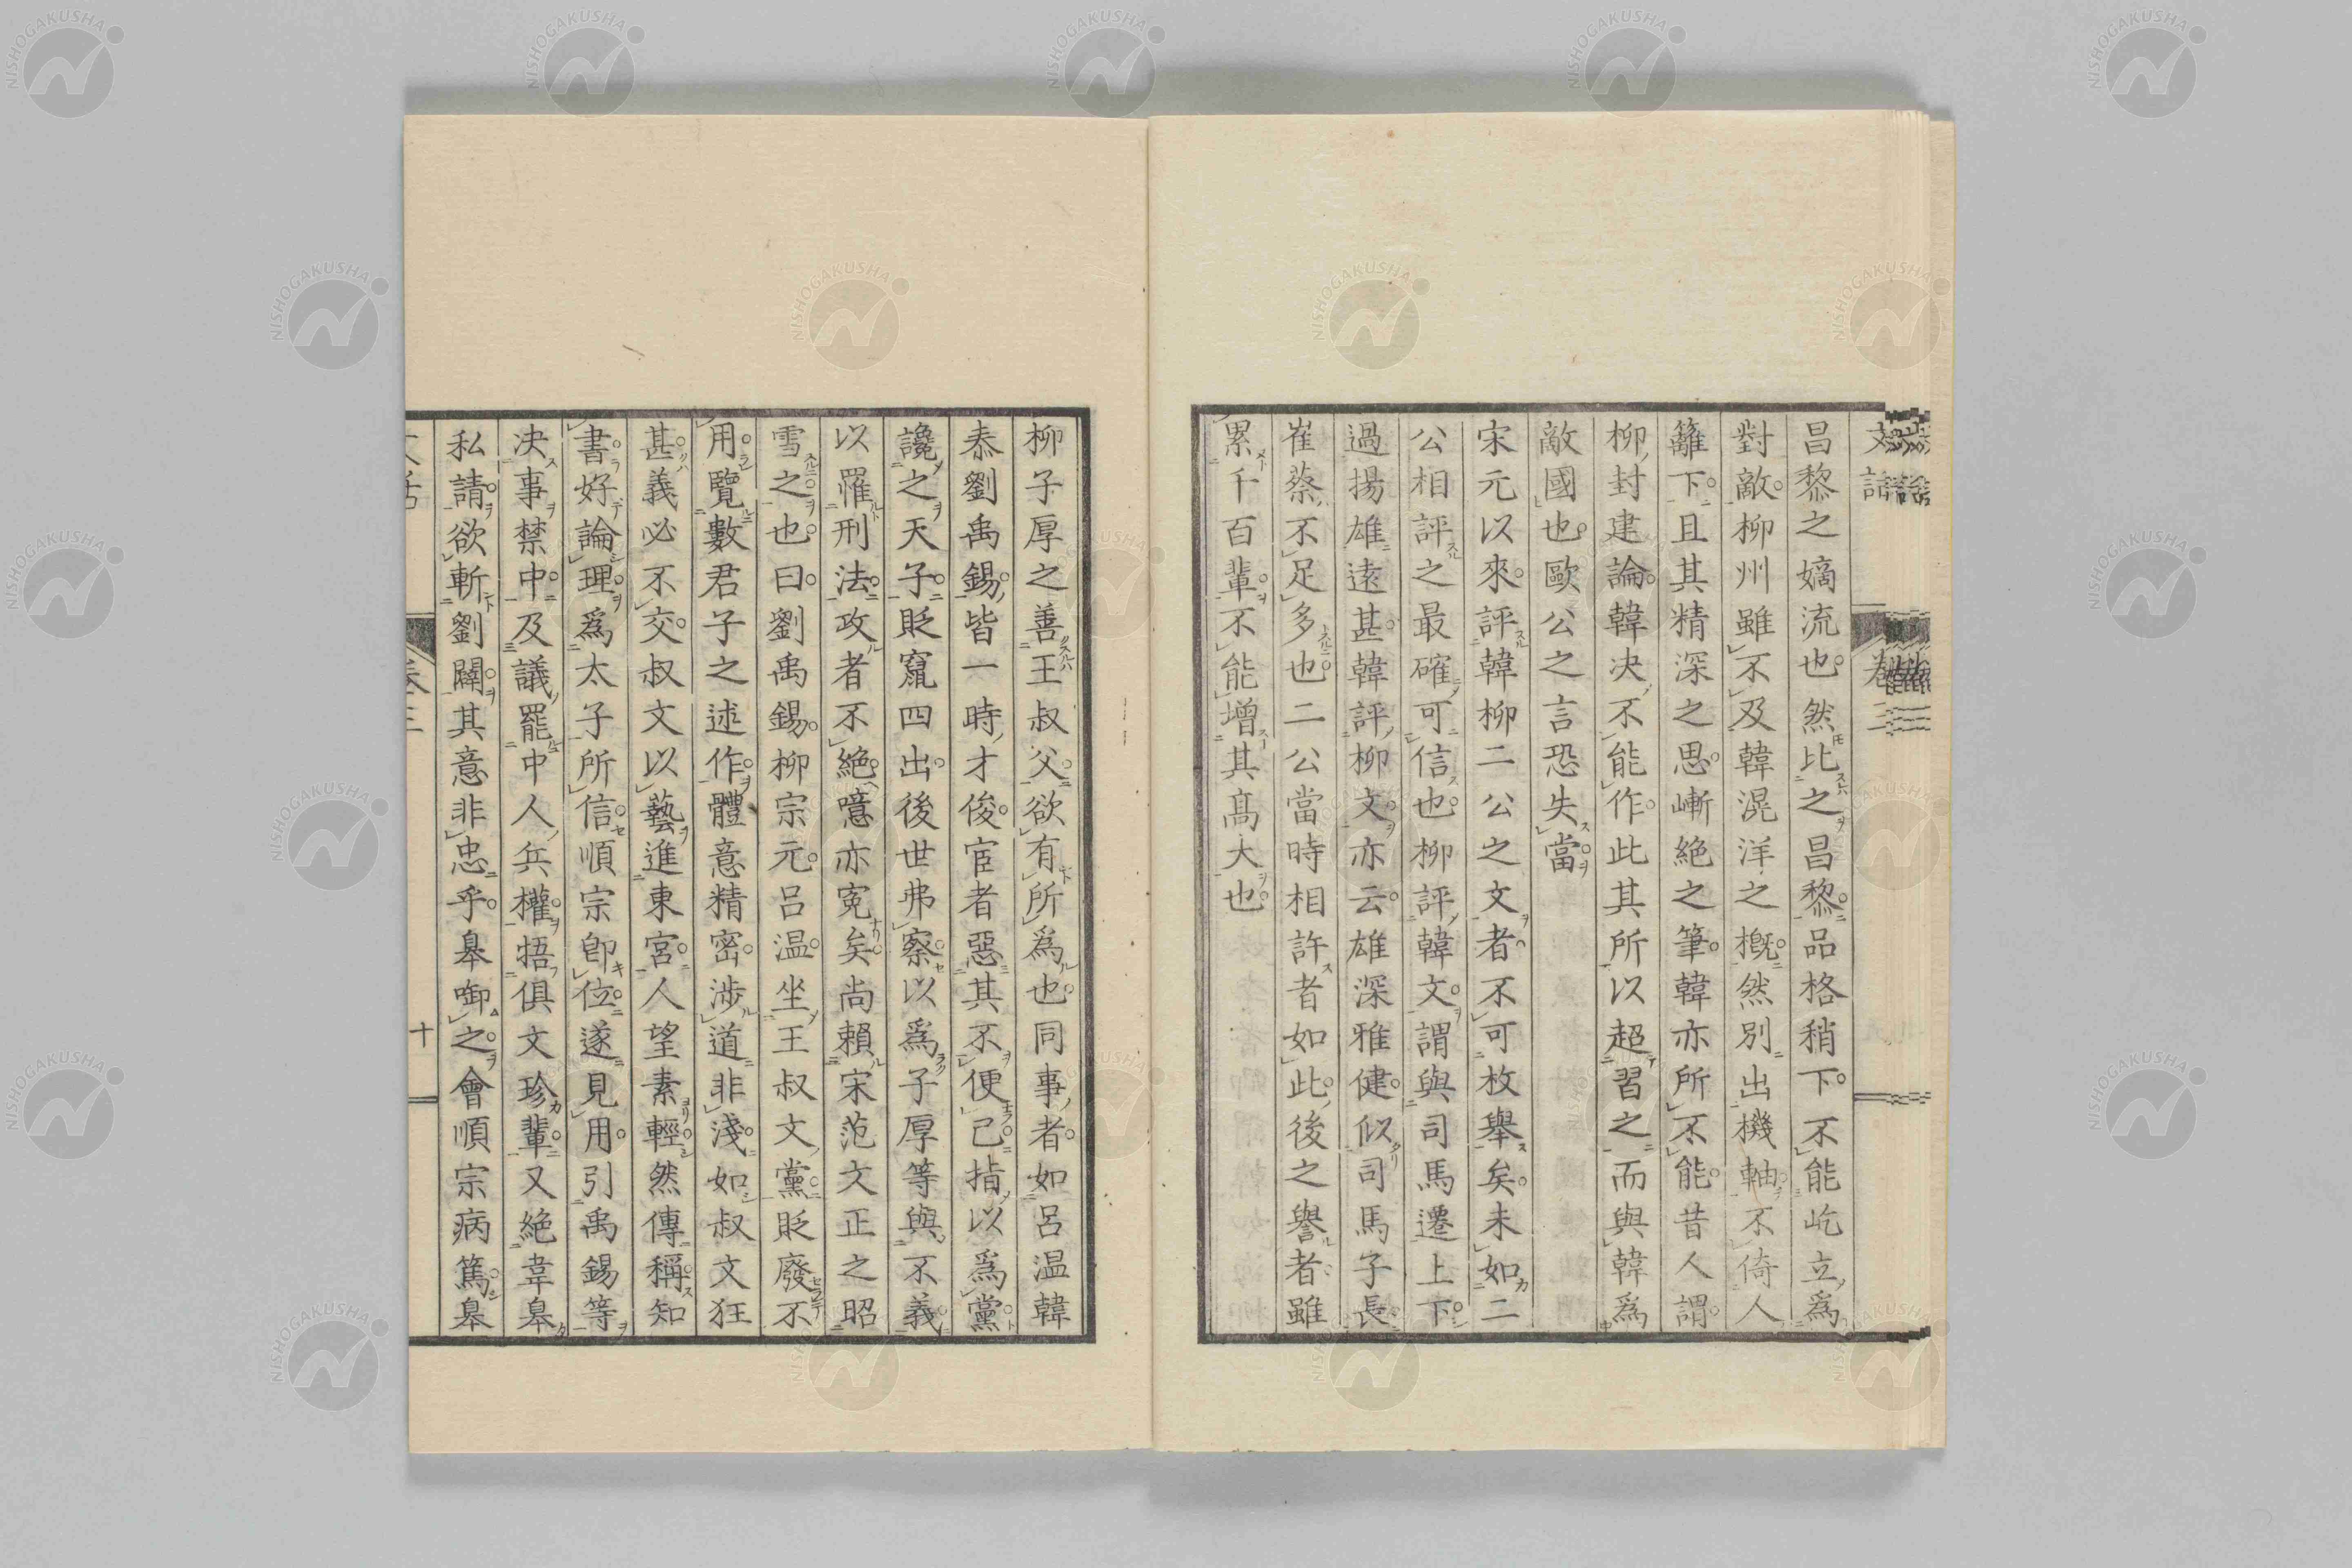 昌黎之嫡流也然比之昌黎品格稍下不能屹立爲
對敵柳州雖不及韓滉洋之槪然別出機軸不倚人
籬下且其精深之思嶄絕之筆韓亦所不能昔人謂
柳封建論韓决不能作此其所以超習之而與韓爲
敵國也歐公之言恐失當
宋元以來評韓柳二公之文者不可枚舉矣未如二
公相評之最確可信也柳評韓文謂與司馬遷上下
過揚雄遠甚韓評柳文亦云雄深雅健似司馬子長
崔蔡不足多也二公當時相許者如此後之譽者雖
累千百輩不能增其髙大也
柳子厚之善王叔父欲有所爲也同事者如呂温韓
泰劉禹錫皆一時才俊宦者惡其不便己指以爲黨
讒之天子貶竄四出後世弗察以爲子厚等與不義
以罹刑法攻者不絕噫亦寃矣尚賴宋范文正之昭
雪之也曰劉禹錫柳宗元呂温坐王叔文黨貶廢不
用覽數君子之述作體意精密涉道非淺如叔文狂
甚義必不交叔文以藝進東宮人望素輕然傳稱知
書好論理爲太子所信順宗卽位遂見用引禹錫等
决事禁中及議罷中人兵權牾俱文珍輩又絕韋皋
私請欲斬劉闢其意非忠乎皋啣之會順宗病篤皋
十
NISHOGAKUSHA